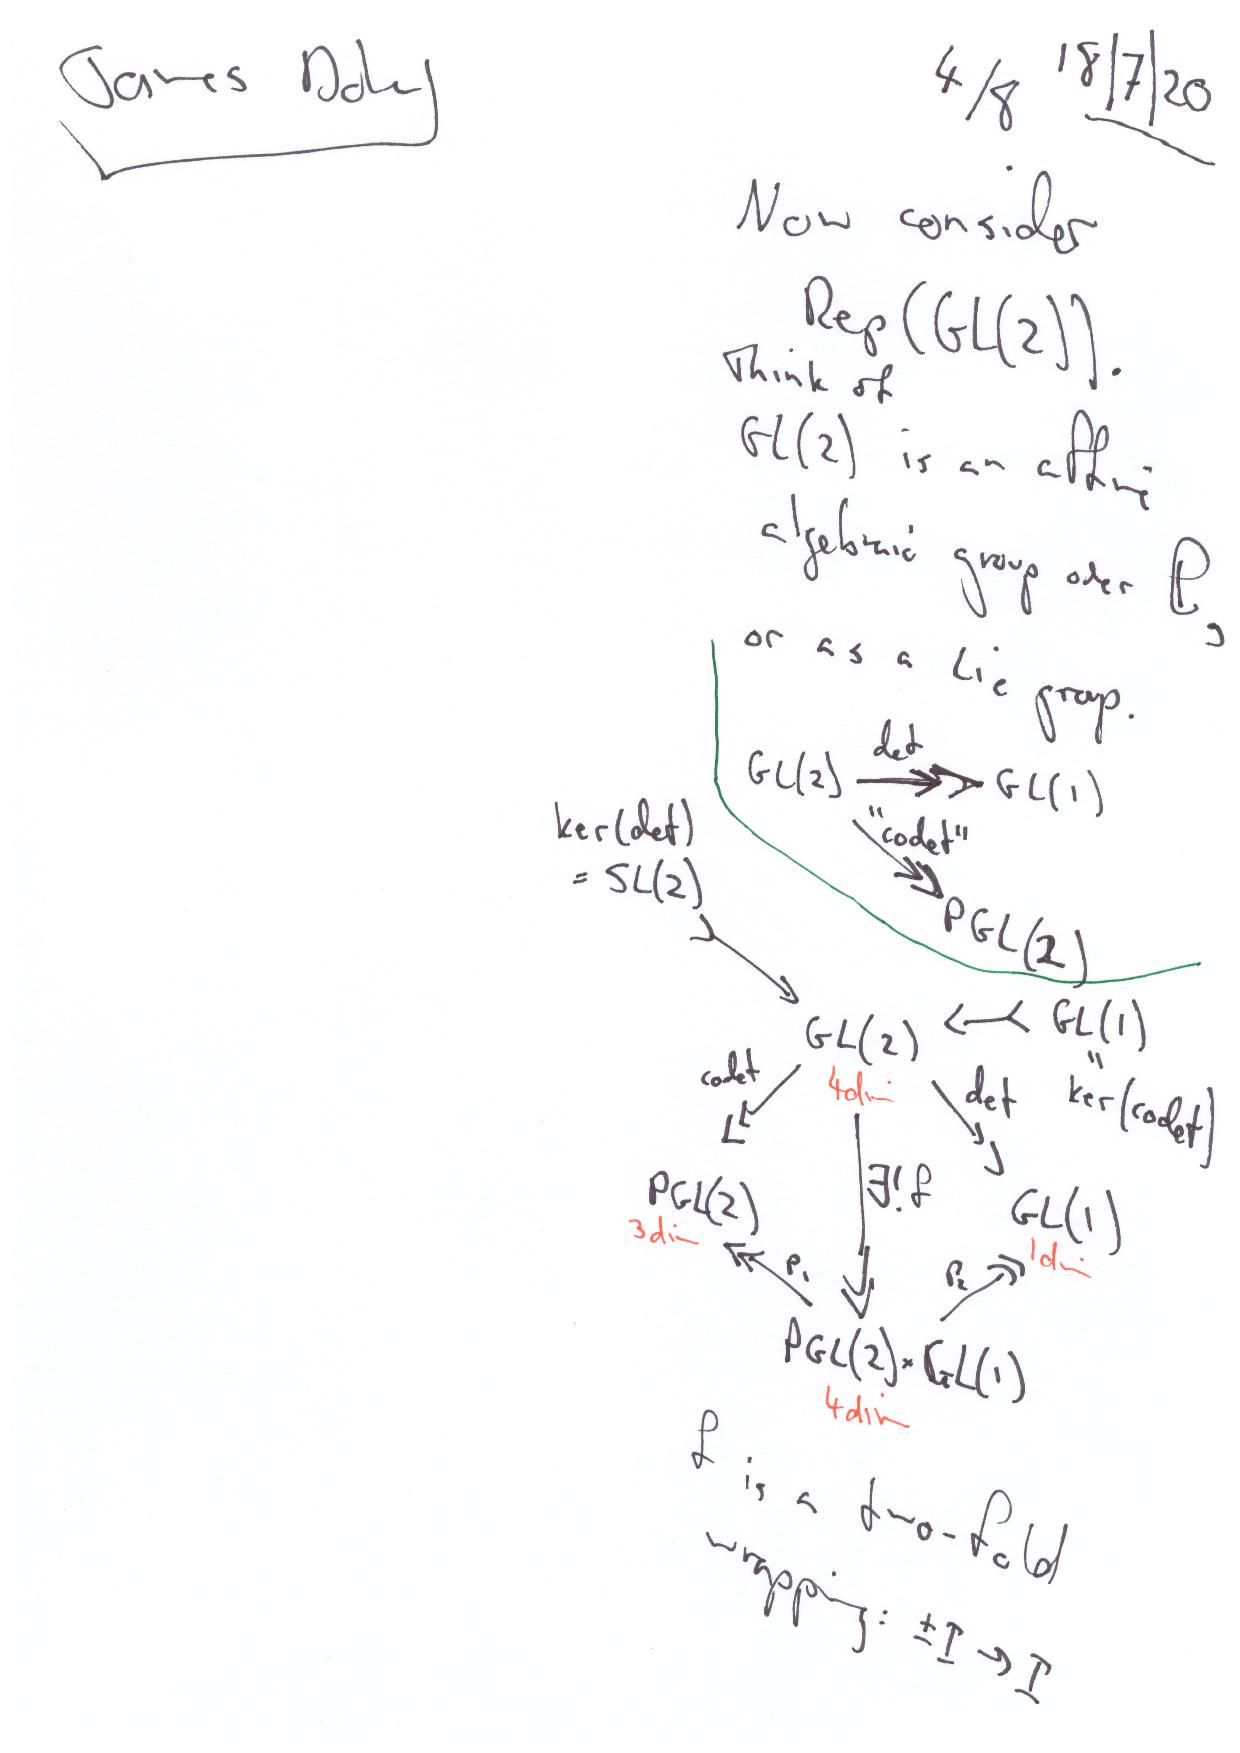 James Dolan
4/8 18/7/20
Now consider
Rep(GL(2)).
Think of
GL(2) is an affine
algebraic group over ℂ,
or as a Lie group.
GL(2) det GL(1)
"codet"
PGL(2)
ker(det)
= SL(2)
GL(2) GL(1)
4dim
"
ker(codet)
codet det
∃!f
PGL(2) GL(1)
3dim 1dim
P₁ P₂
PGL(2) × GL(1)
4dim
f is a two-fold
wrapping: ±I → I